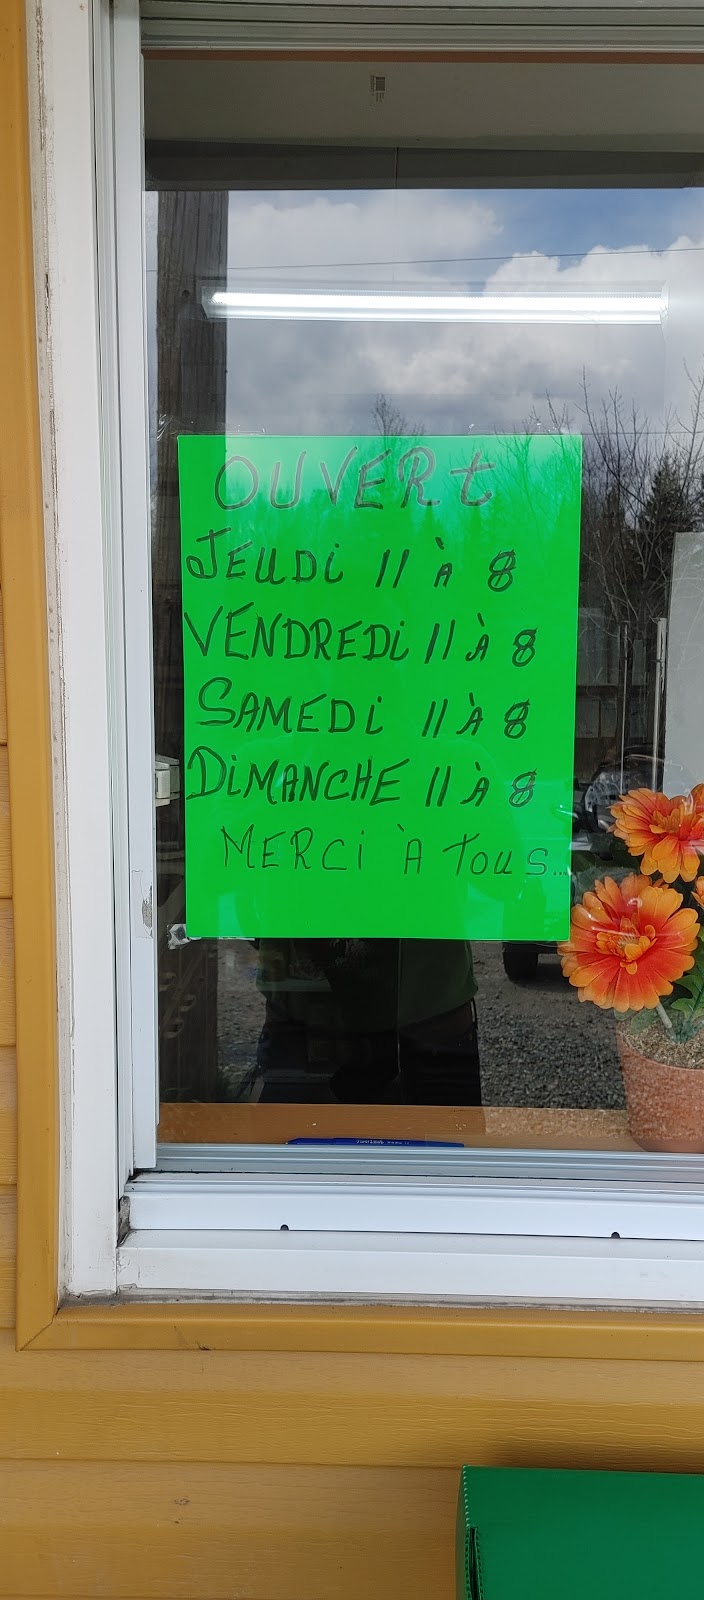 OUVERt
JEUDi 11 À 8
VENDREDi 11 À 8
SAMEDi 11 À 8
DiMANCHE 11 À 8
MERCi À TOUS...